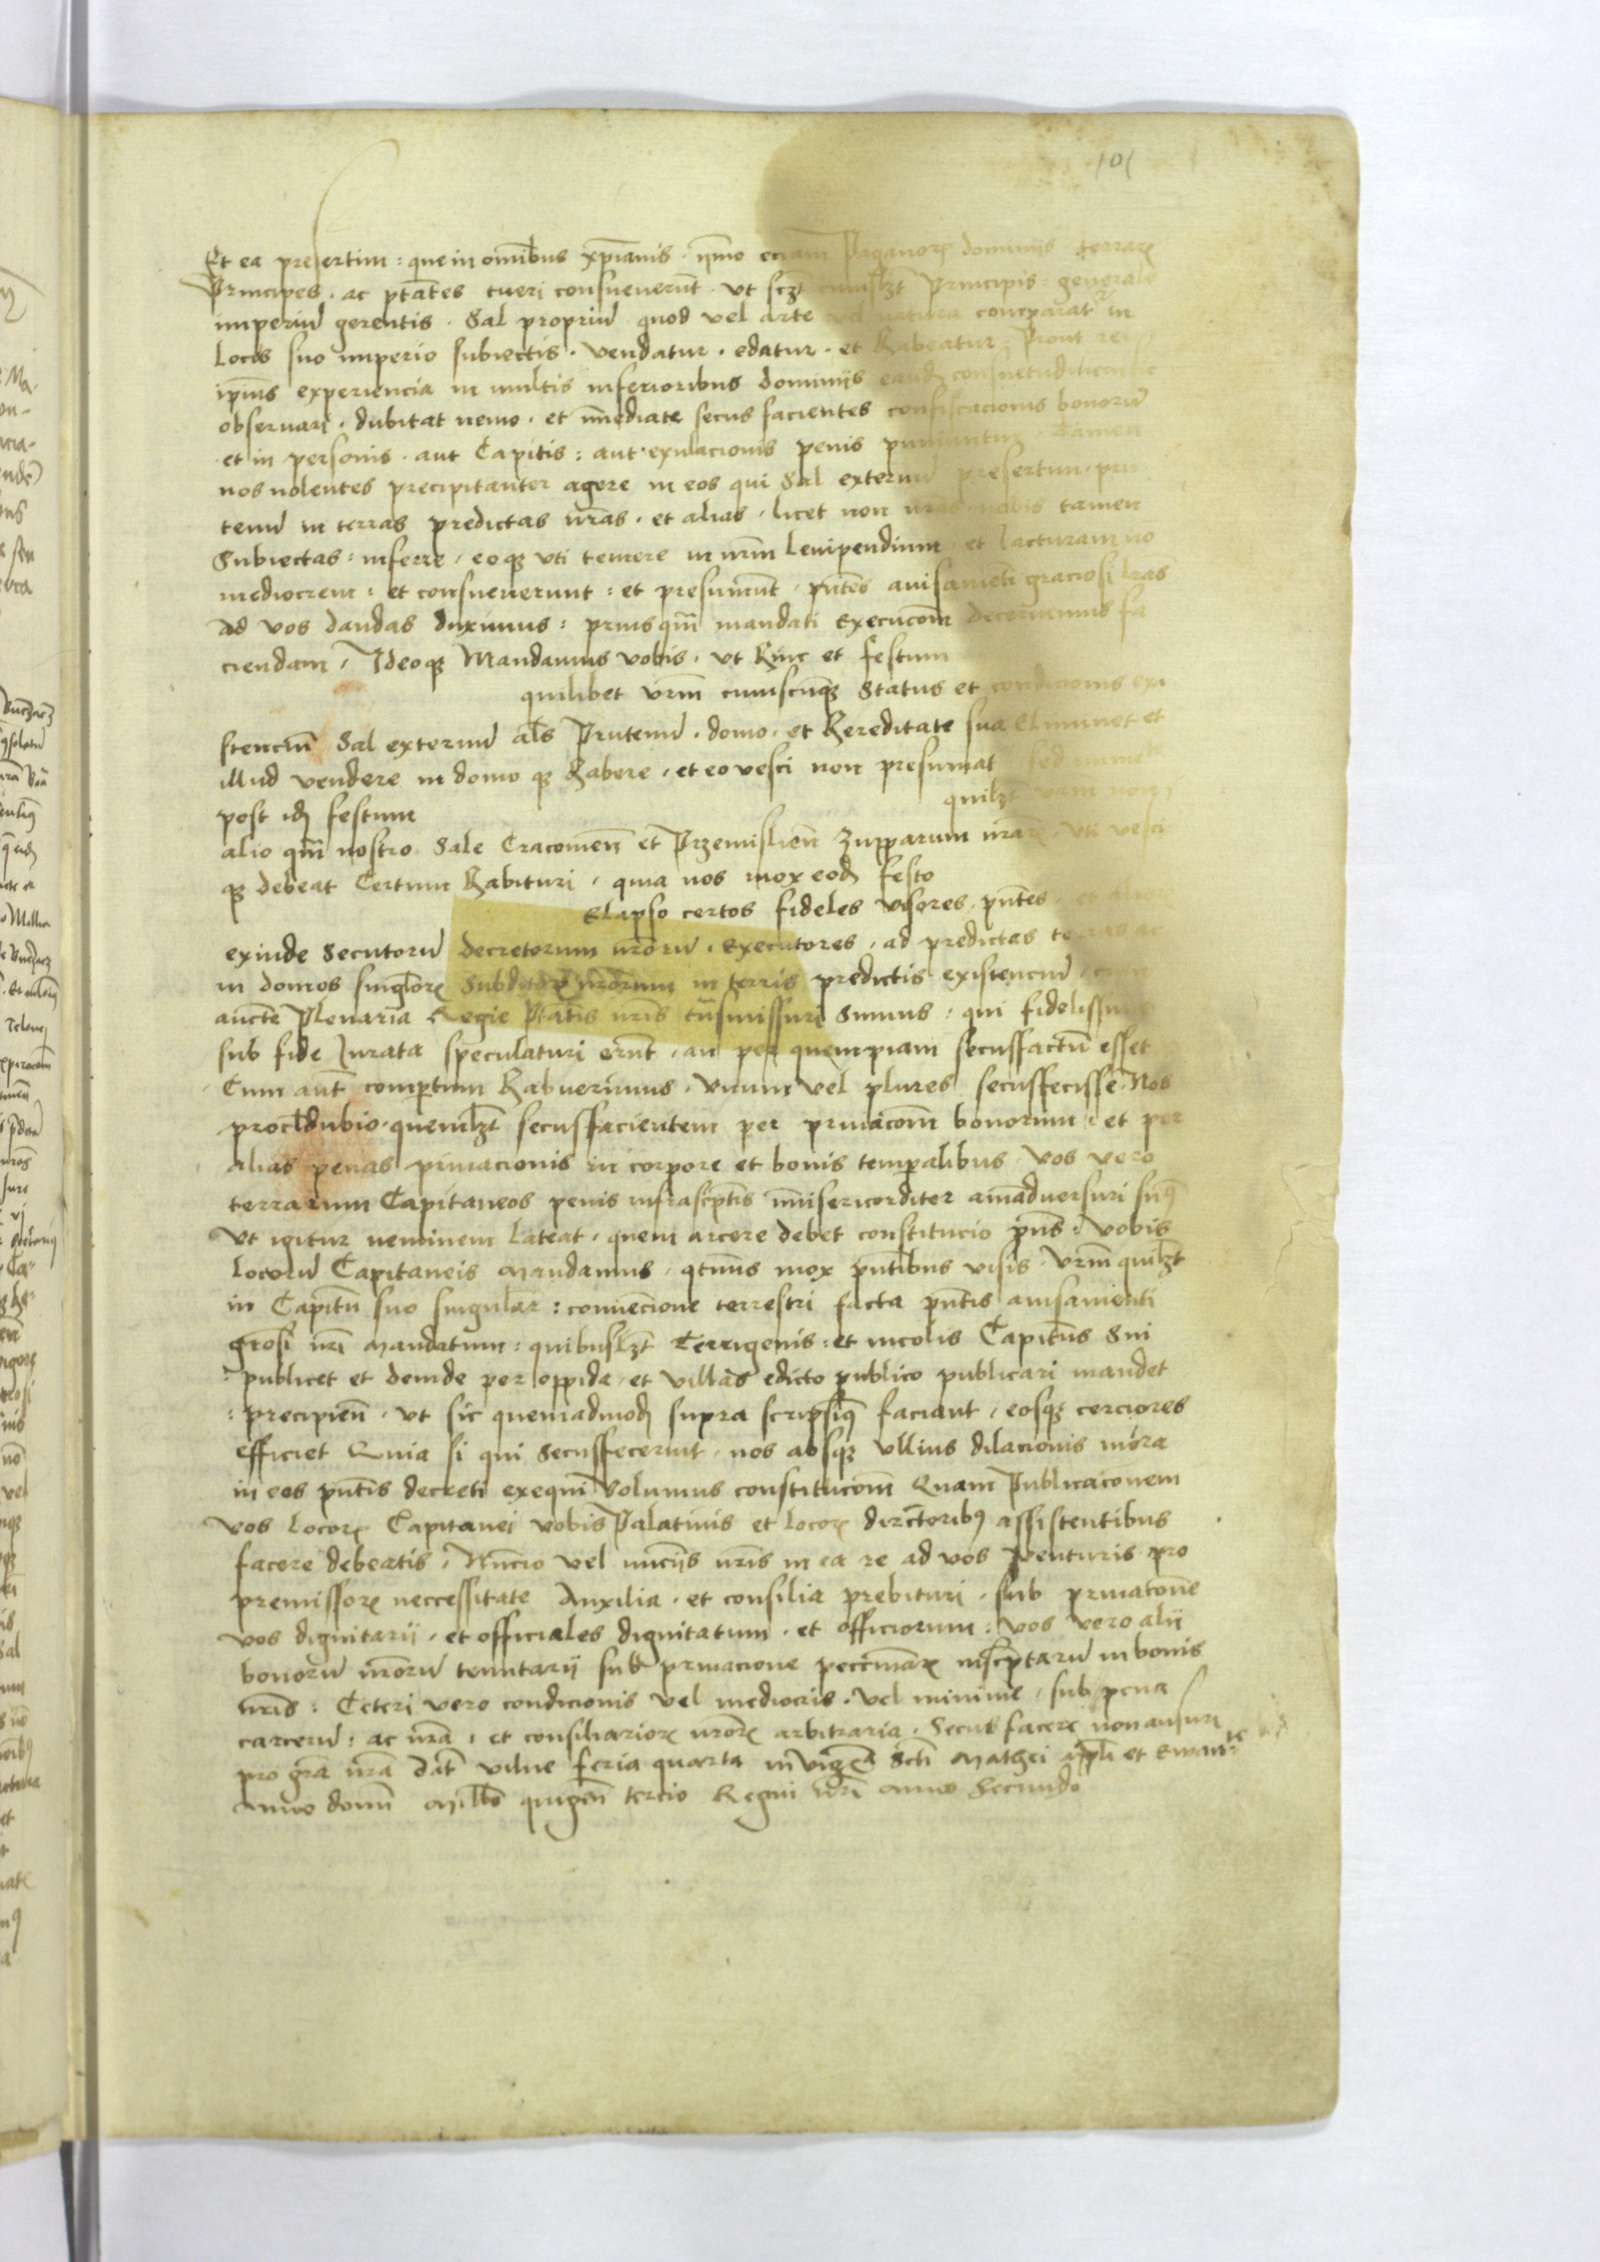 101
Et ea presertim : que in omībus xpianis · ymo eciam Paganoꝝ dominijs terraꝝ
Principes · ac ptātes tueri consueuerūt · vt scꝫt cuiuslꝫt Principis generale
imperiū gerentis · Sal propriū quod vel arte vel natura comparat͛ in
locis suo imperio subiectis · vendatur · edatur · et habeatur · Prout rei
ipīus experiencia in multis inferioribus dominijs eandꝫ consuetudinem
obseruari · dubitat nemo · et īmediate secus facientes confiscacionis bonorū
et in personis · aut Capitis : aut exulacionis penis puniuntur Tamen
nos nolentes precipitanter agere in eos qui Sal externū presertim pru
tenū in terras predictas nrās · et alias · licet non nrās nobis tamen
Subiectas : inferre · eoqꝫ vti temere in nrm̄ leuipendium et iacturam no
mediocrem : et consueuerunt : et presumūt · pn̄tes auisamēti graciosi lrās
ad vos dandas duximus : priusqm̄ mandati execucōm decernimus fa
ciendam · Ideoqꝫ Mandamus vobis · vt hinc et festum
quilibet vrm̄ cuiuscūqꝫ Status et condicionis exi
stenciū Sal externū als̄ Prutenū · domo · et hereditate sua eliminet et
illud vendere in domo qꝫ habere · et eo vesci non presumat Sed
post idꝫ festum quilꝫt
alio qm̄ nostro Sale Cracouien̄ et Przemislien̄ zupparum nrāꝝ · vti vesci
qꝫ debeat Certum habituri · quia nos mox eodꝫ festo
Elapso certos fideles visores · pn̄tes · et
exinde Secutorū decretorum nrōrū · executores · ad predictas terras ac
in domos singl̄oꝝ Subditoꝝ nrōrum in terris predictis existenciū ·
aucte Plenaria Regie Ptātis nrīs trn̄smissuri Sumus : qui fidelissime
sub fide Iurata speculaturi erūt · an per quempiam secusfactū esset
Cum aūt compertum habuerimus · vnum vel plures secusfecisse · Nos
procl̄dubio · quemlꝫt secusfacientem per priuacōm bonorum · et per
alias penas priuacionis in corpore et bonis temporalibus vos vero
terrarum Capitaneos penis infrascptis īmisericorditer aīmaduersuri sum⁹
Vt igitur neminem lateat · quem arcere debet constitucio pn̄s · vobis
locorū Capitaneis mandamus · qtnūs mox pn̄tibus visis · vrm̄ quilꝫt
in Capitū suo singular : conuencione terrestri facta pn̄tis auisamenti
grosi nrī mandatum : quibuslꝫt Terrigenis : et incolis Capitūs Sui
publicet et deinde per oppida · et villas edicto publico publicari mandet
: precipien̄ · vt sic quemadmodꝫ supra scripsim⁹ faciant · eosqꝫ cerciores
efficiet Quia si qui Secusfecerint · nos absqꝫ vllius dilacionis mora
in eos pn̄tis decreti exequi Volumus constitucōm Quam Publicaconem
vos locoꝝ Capitanei vobis Palatinis et locoꝝ dirctorib⁹ assistentibus
facere debeatis · Nuncio vel nuncijs nrīs in ea re ad vos venturis pro
premissoꝝ neccessitate Auxilia · et consilia prebituri · sub priuatone
vos dignitarij · et officiales dignitatum · et officiorum : vos vero alij
bonorū nrōrū tenutarij sub priuacione peccuniaꝝ inscptarū in bonis
nrīs : Ceteri vero condicionis vel mediocris · vel minime · sub pena
carcerū : ac nrā · et consiliarioꝝ nrōꝝ arbitraria · Secus facere non ausuri
pro grā nrā Dat̄ vilne feria quarta in vigīā Scti Mathei apl̄i et Ewan
Anno domī Mill̄o quigen̄ tercio Regni nrī anno Secundo